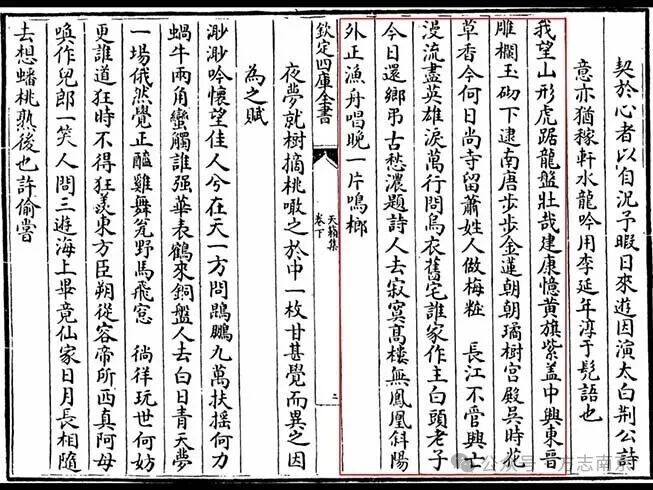 契於心者以自況予暇日來遊因演太白荆公詩
意亦猶稼軒水龍吟用李延年淳于髡語也
我望山形虎踞龍盤壯哉建康憶黃旗紫盖中興東晉
雕欄玉砌下逮南唐步步金蓮朝朝瓊樹宮殿吳時花
草香今何日尚寺留蕭姓人做梅粧　長江不管興亡
漫流盡英雄淚萬行問烏衣舊宅誰家作主白頭老子
今日還鄉弔古愁濃題詩人去寂寞髙樓無鳳凰斜陽
外正漁舟唱晚一片鳴榔
欽定四庫全書
天籟集
卷下
二
夜夢就樹摘桃噉之於中一枚甘甚覺而異之因
為之賦
渺渺吟懷望佳人兮在天一方問鵾鵬九萬扶搖何力
蝸牛兩角蠻觸誰强華表鶴來銅盤人去白日青天夢
一場俄然覺正醯雞舞甕野馬飛窓　徜徉玩世何妨
更誰道狂時不得狂羡東方臣朔從容帝所西真阿母
喚作兒郎一笑人間三遊海上畢竟仙家日月長相隨
去想蟠桃熟後也許偷嘗
公众号 · 方志南京